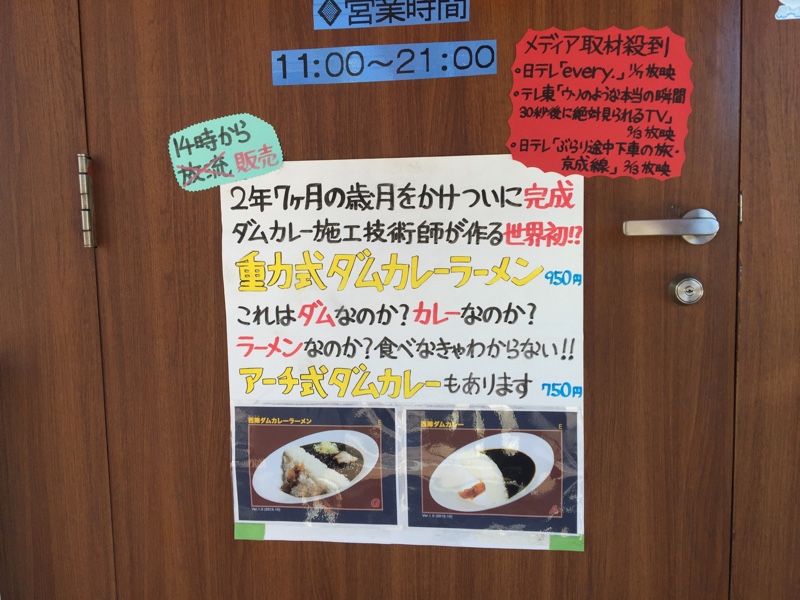 ◇営業時間
11:00〜21:00
メディア取材殺到
・日テレ「every.」11/7放映
・テレ東「ウソのような本当の瞬間
30秒後に絶対見られるTV」
9/13放映
・日テレ「ぶらり途中下車の旅・
京成線」2/13放映
14時から
放流 販売
2年7ヶ月の歳月をかけついに完成
ダムカレー施工技術師が作る世界初!?
重力式ダムカレーラーメン 950円
これはダムなのか?カレーなのか?
ラーメンなのか?食べなきゃわからない!!
アーチ式ダムカレーもあります 750円
西陣ダムカレーラーメン
西陣ダムカレー